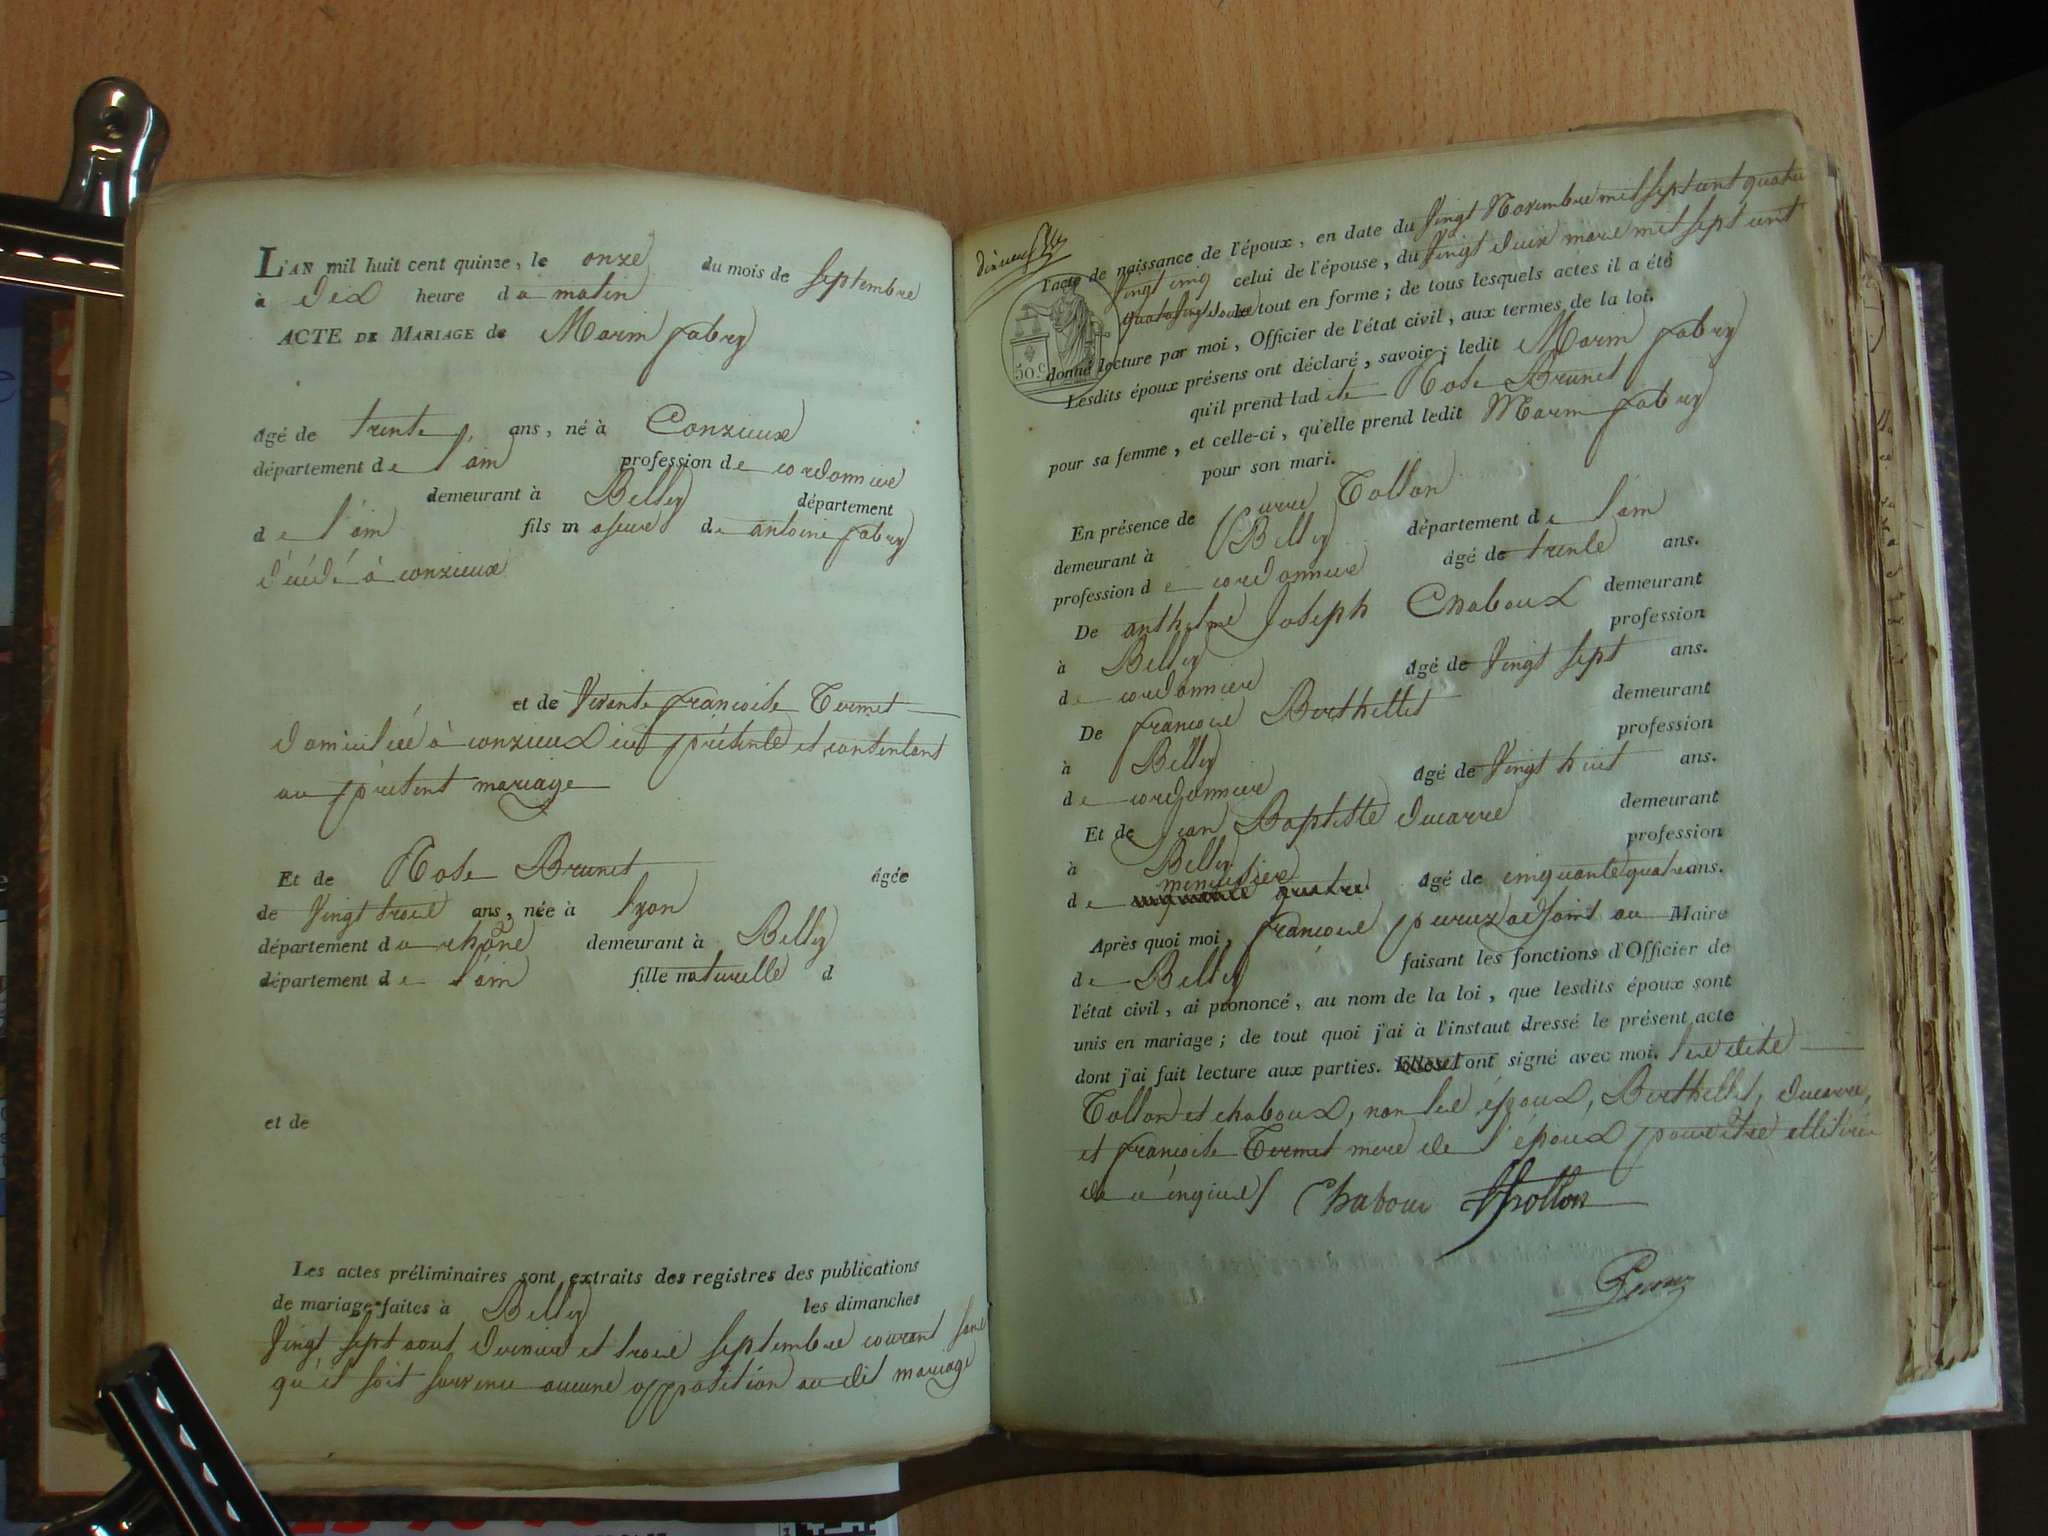 L'AN mil huit cent quinze, le onze du mois de septembre
à dix heure du matin
ACTE DE MARIAGE de Marin fabry
agé de trente ans, né à Conzieux
département de l'ain profession de cordonnier
demeurant à Belley département
de l'ain fils majeur de antoine fabry
décédé à conzieux
et de Vivante françoise Termet
domiciliée à conzieux ici présente et consentant
au présent mariage
Et de Rose Brunet agée
de Vingt trois ans, née à lyon
département du rhône demeurant à Belley
département de l'ain fille naturelle d
et de
Les actes préliminaires sont extraits des registres des publications
de mariage faites à Belley les dimanches
Vingt sept aout dernier et trois septembre courant sans
qu'il soit survenu aucune opposition au dit mariage
l'acte de naissance de l'époux, en date du Vingt Novembre mil sept cent quatre
Vingt cinq celui de l'épouse, du Vingt deux mars mil sept cent
quatre vingt douze le tout en forme; de tous lesquels actes il a été
donné lecture par moi, Officier de l'état civil, aux termes de la loi.
50 c
Lesdits époux présens ont déclaré, savoir; ledit Marin fabry
qu'il prend ladite Rose Brunet
pour sa femme, et celle-ci, qu'elle prend ledit Marin fabry
pour son mari.
En présence de Pierre Tollon
demeurant à Belley département de l'ain
profession de cordonnier âgé de trente ans.
De anthelme Joseph Chaboux demeurant
à Belley profession
de cordonnier âgé de Vingt sept ans.
De françois Berthellet demeurant
à Belley profession
de cordonnier âgé de Vingt huit ans.
Et de jean Baptiste ducarre demeurant
à Belley profession
de menuisier âgé de cinquante quatre ans.
Après quoi moi, françois peruz adjoint au Maire
de Belley faisant les fonctions d'Officier de
l'état civil, ai prononcé, au nom de la loi, que lesdits époux sont
unis en mariage; de tout quoi j'ai à l'instaut dressé le présent acte
dont j'ai fait lecture aux parties. ont signé avec moi. les dits
Tollon et chaboux, non les époux, Berthellet, ducarre,
et françoise Termet mere de l'époux pour être illitirés
de ce enquis Chaboux Thollon
Peruz